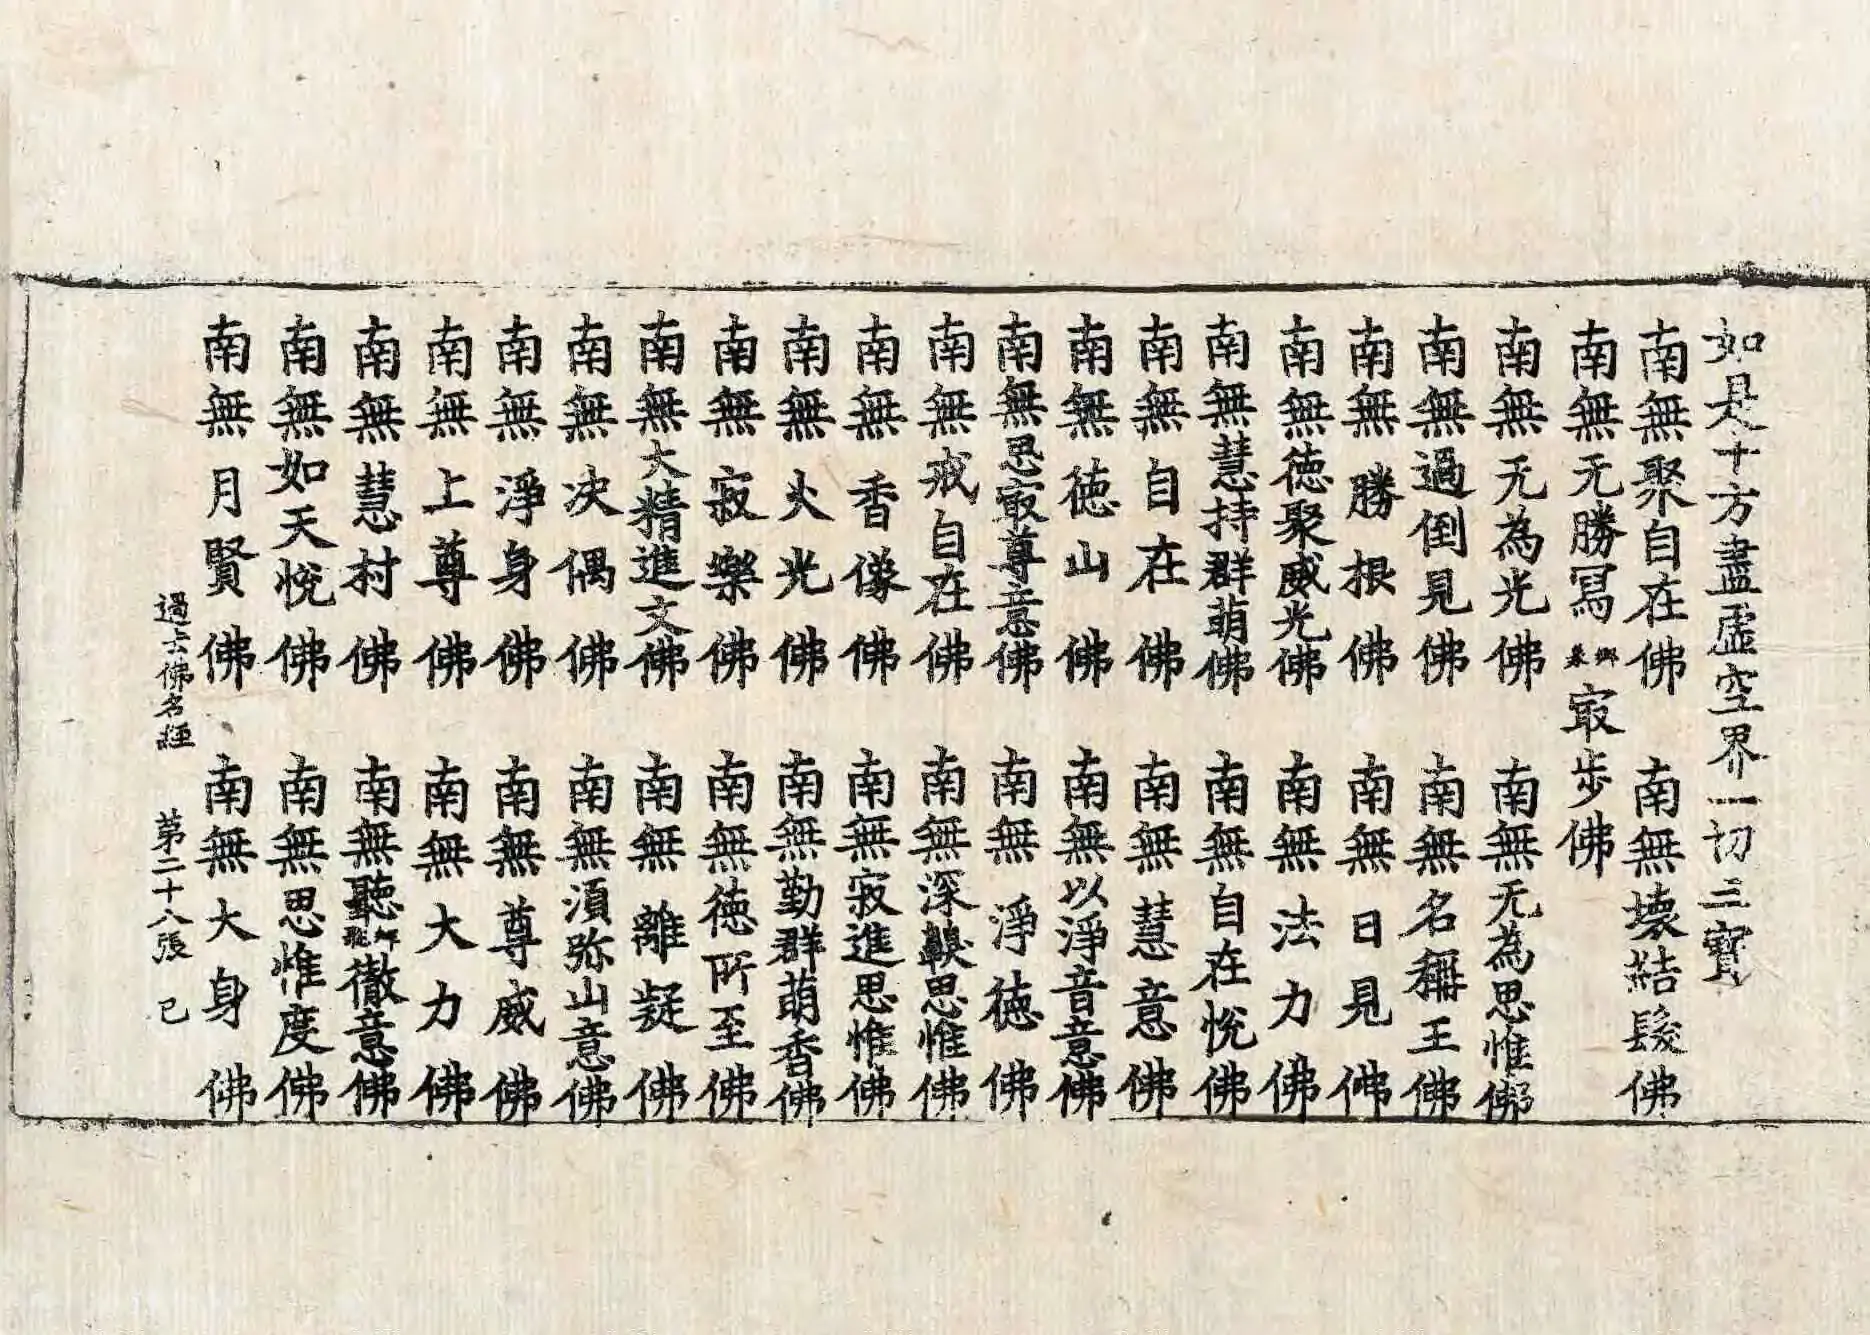 如是十方盡虛空界一切三寶
南無聚自在佛　南無壞結髮佛
南無无勝冩最步佛
南無无為光佛　南無无為思惟佛
南無過倒見佛　南無名稱王佛
南無勝根佛　南無日見佛
南無德聚威光佛　南無法力佛
南無慧持群萌佛　南無自在悅佛
南無自在佛　南無慧意佛
南無德山佛　南無以淨音意佛
南無思最尊意佛　南無淨德佛
南無戒自在佛　南無深思惟佛
南無香像佛　南無寂進思惟佛
南無火光佛　南無勤群萌香佛
南無寂樂佛　南無德所至佛
南無大精進文佛　南無離疑佛
南無决偶佛　南無須弥山意佛
南無淨身佛　南無尊威佛
南無上尊佛　南無大力佛
南無慧村佛　南無聽徹意佛
南無如天悅佛　南無思惟度佛
南無月賢佛　南無大身佛
過去佛名經　第二十八張　已